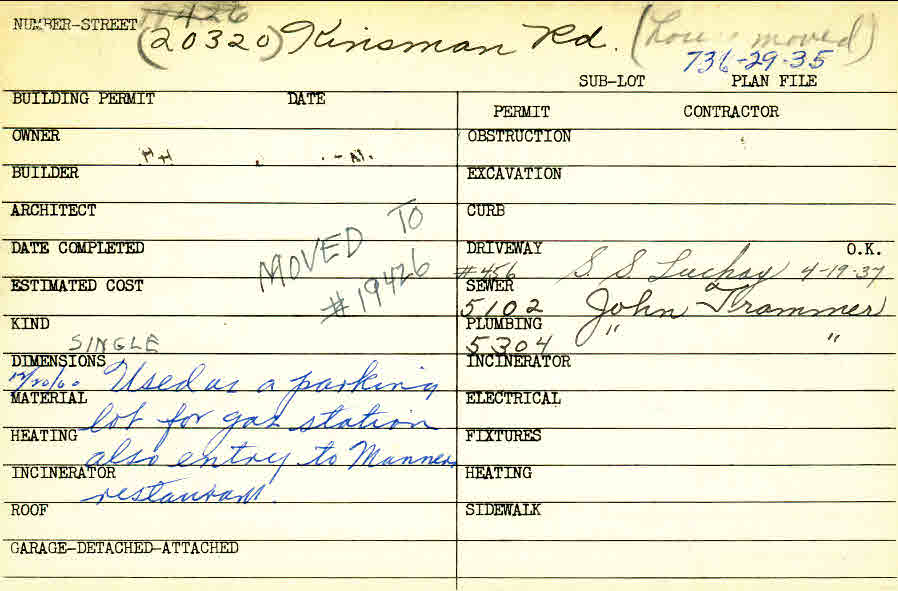 19426
NUMBER-STREET (20320) Kinsman Rd. (House moved)
736-29-35
SUB-LOT PLAN FILE
BUILDING PERMIT DATE
OWNER
BUILDER
ARCHITECT
DATE COMPLETED
ESTIMATED COST
MOVED TO
#19426
KIND
SINGLE
DIMENSIONS
12/20/60 Used as a parking
MATERIAL
lot for gas station
HEATING
also entry to Manners
INCINERATOR
restaurant.
ROOF
GARAGE-DETACHED-ATTACHED
PERMIT CONTRACTOR
OBSTRUCTION
EXCAVATION
CURB
DRIVEWAY O.K.
#456 S. S. Luchay 4-19-37
SEWER
5102 John Trammer
PLUMBING " "
5304
INCINERATOR
ELECTRICAL
FIXTURES
HEATING
SIDEWALK